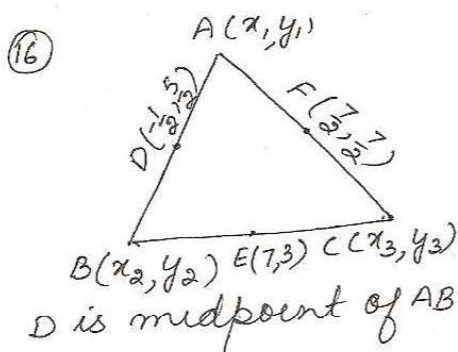 16
A(x₁, y₁)
D(-1/2, 5/2)
F(7/2, 7/2)
B(x₂, y₂) E(7,3) C(x₃, y₃)
D is midpoint of AB